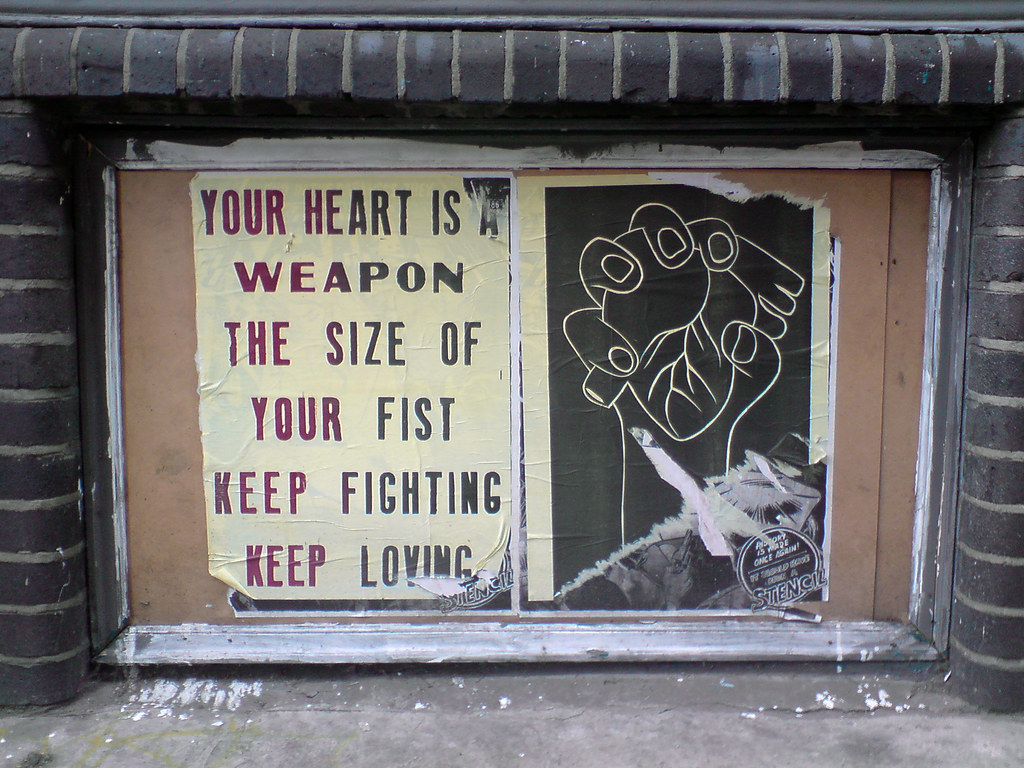 YOUR HEART IS A
WEAPON
THE SIZE OF
YOUR FIST
KEEP FIGHTING
KEEP LOVING
STENCIL
HISTORY
IS MADE
ONCE AGAIN!
STENCIL